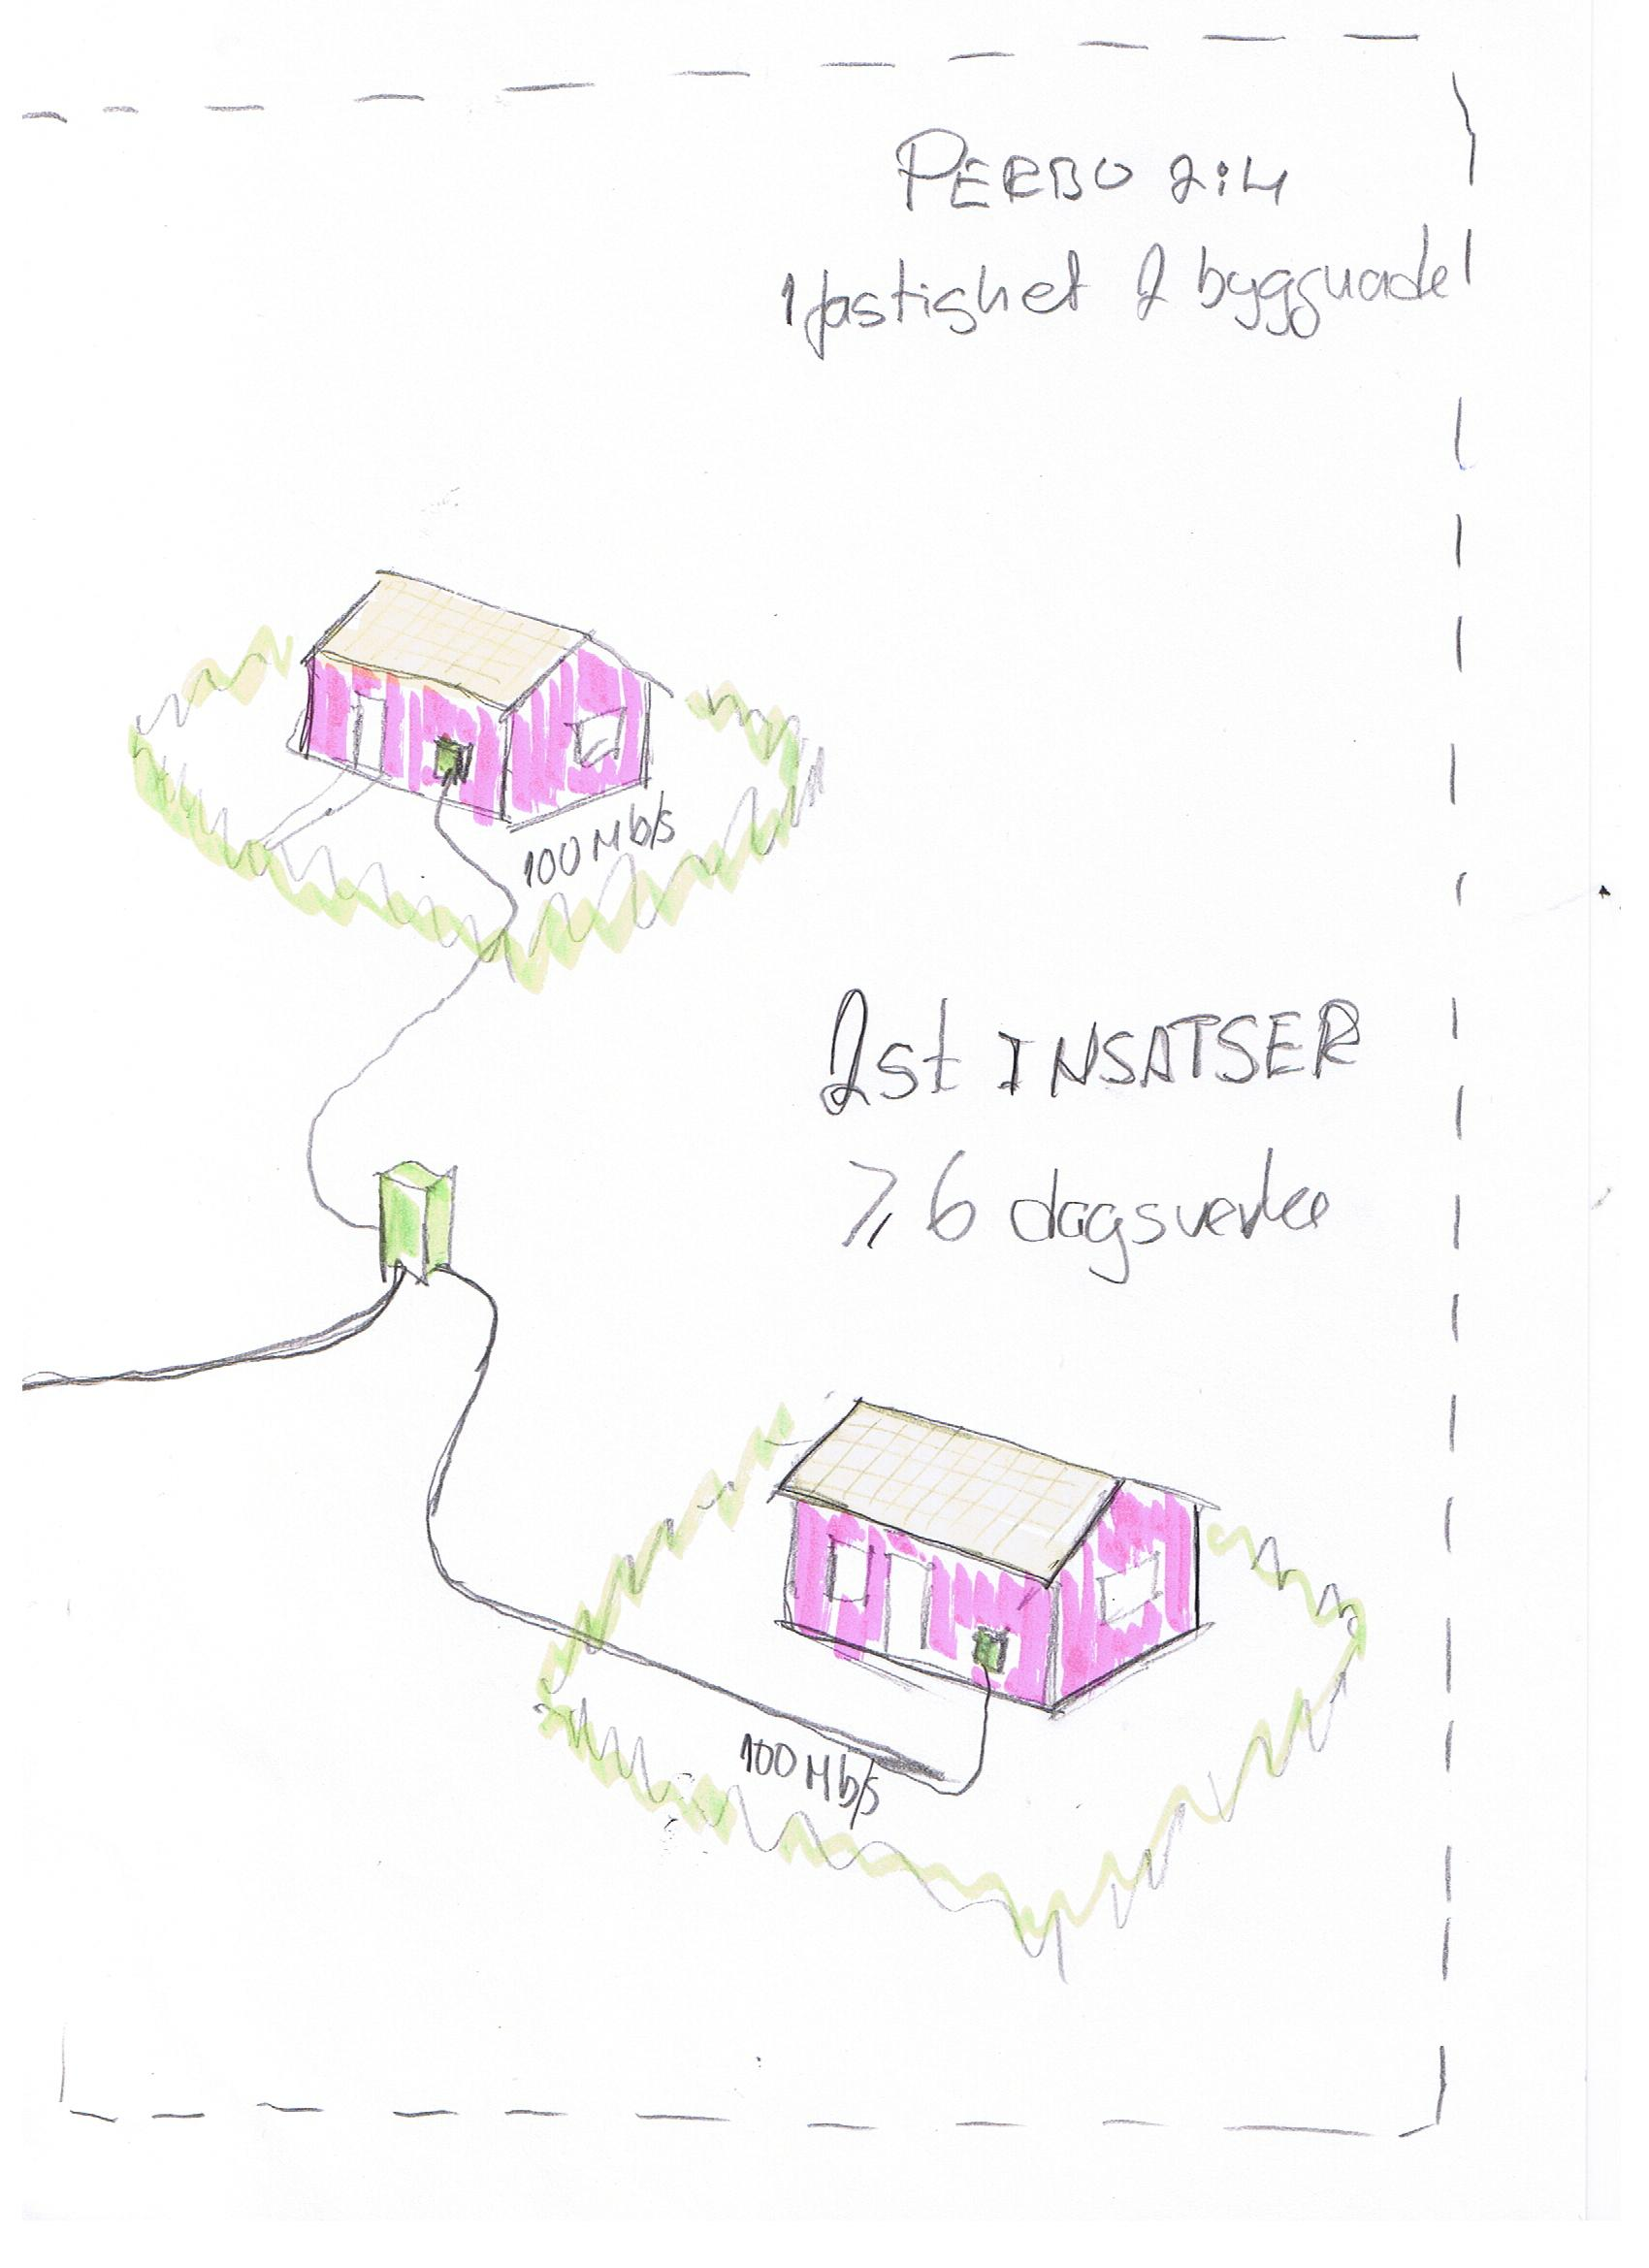 PERBO 2:4
1 fastighet 2 byggnader
100 Mb/s
2st INSATSER
≥ 6 dagsverke
100 Mb/s